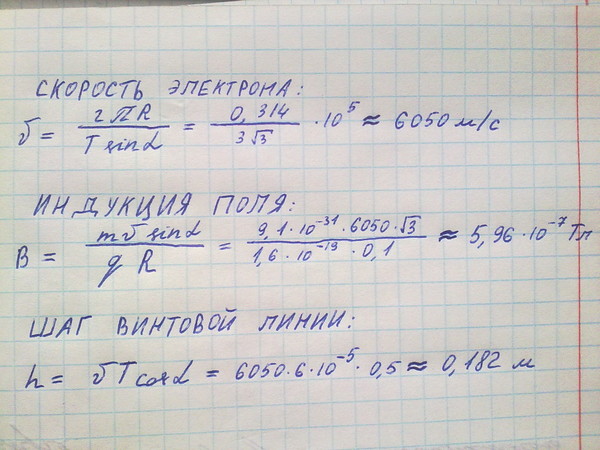 СКОРОСТЬ ЭЛЕКТРОНА:
v = 2πR / T sinα = 0,314 / 3√3 · 10⁵ ≈ 6050 м/с
ИНДУКЦИЯ ПОЛЯ:
B = mv sinα / q R = 9,1·10⁻³¹·6050·√3 / 1,6·10⁻¹⁹·0,1 ≈ 5,96·10⁻⁷ Тл
ШАГ ВИНТОВОЙ ЛИНИИ:
h = vT cosα = 6050·6·10⁻⁵·0,5 ≈ 0,182 м